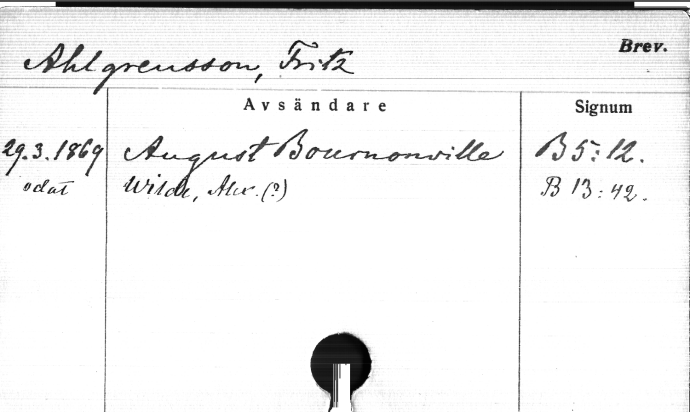 Ahlgrensson, Fritz
Brev.
Avsändare
Signum
29.3.1869 August Bournonville B 5:12.
odat Wilde, Alex. (?) B 13:42.